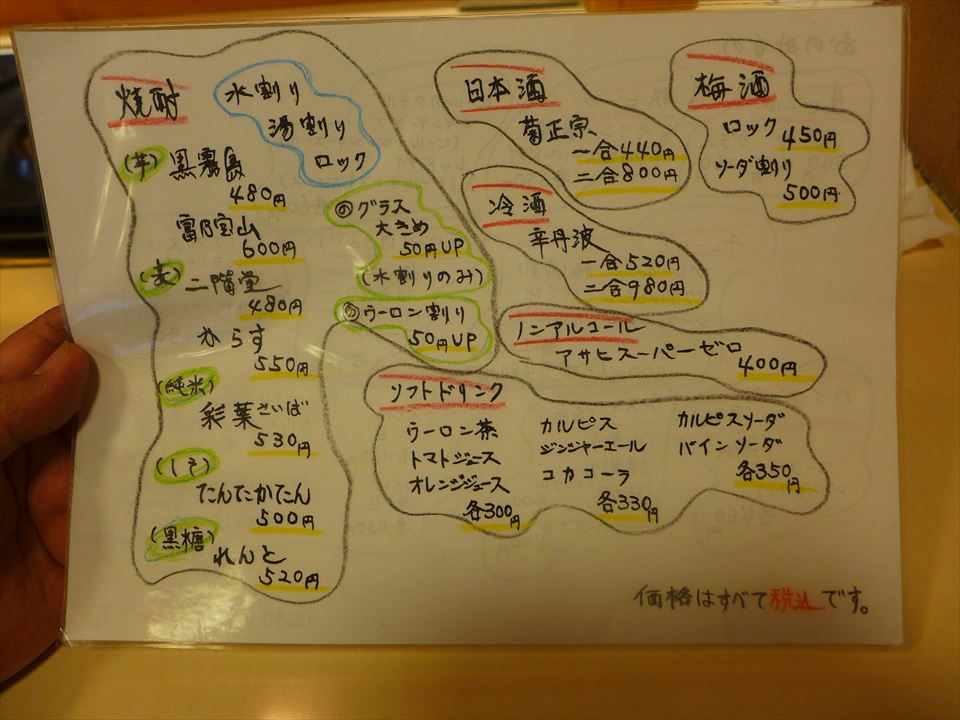 焼酎
水割り
湯割り
ロック
(芋) 黒霧島
480円
富乃宝山
600円
(麦) 二階堂
480円
からす
550円
(純米)
彩葉さいば
530円
(しそ)
たんたかたん
500円
(黒糖)
れんと
520円
グラス
大きめ
50円UP
(水割りのみ)
ウーロン割り
50円UP
日本酒
菊正宗
一合440円
二合800円
梅酒
ロック 450円
ソーダ割り
500円
冷酒
辛丹波
一合520円
二合980円
ノンアルコール
アサヒスーパーゼロ
400円
ソフトドリンク
ウーロン茶
トマトジュース
オレンジジュース
各300円
カルピス
ジンジャーエール
コカコーラ
各330円
カルピスソーダ
パインソーダ
各350円
価格はすべて税込です。